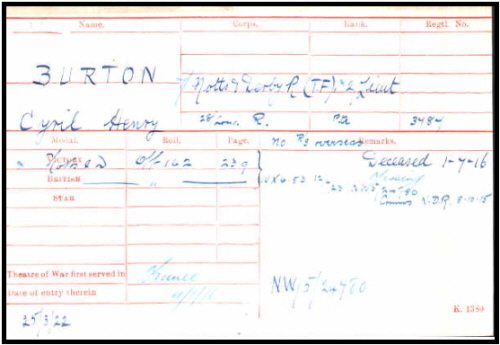 Name. Corps. Rank. Regtl. No.
BURTON
Notts & Derby R (TF) 2 Lieut
Cyril Henry
28 Lon. R. Pte 3484
Medal. Roll. Page. Remarks.
VICTORY Off 162 239
BRITISH
STAR
Deceased 1-7-16
N.D.R. 8-10-15
Theatre of War first served in France
Date of entry therein
NW/5/24780
K. 1380
25/3/22